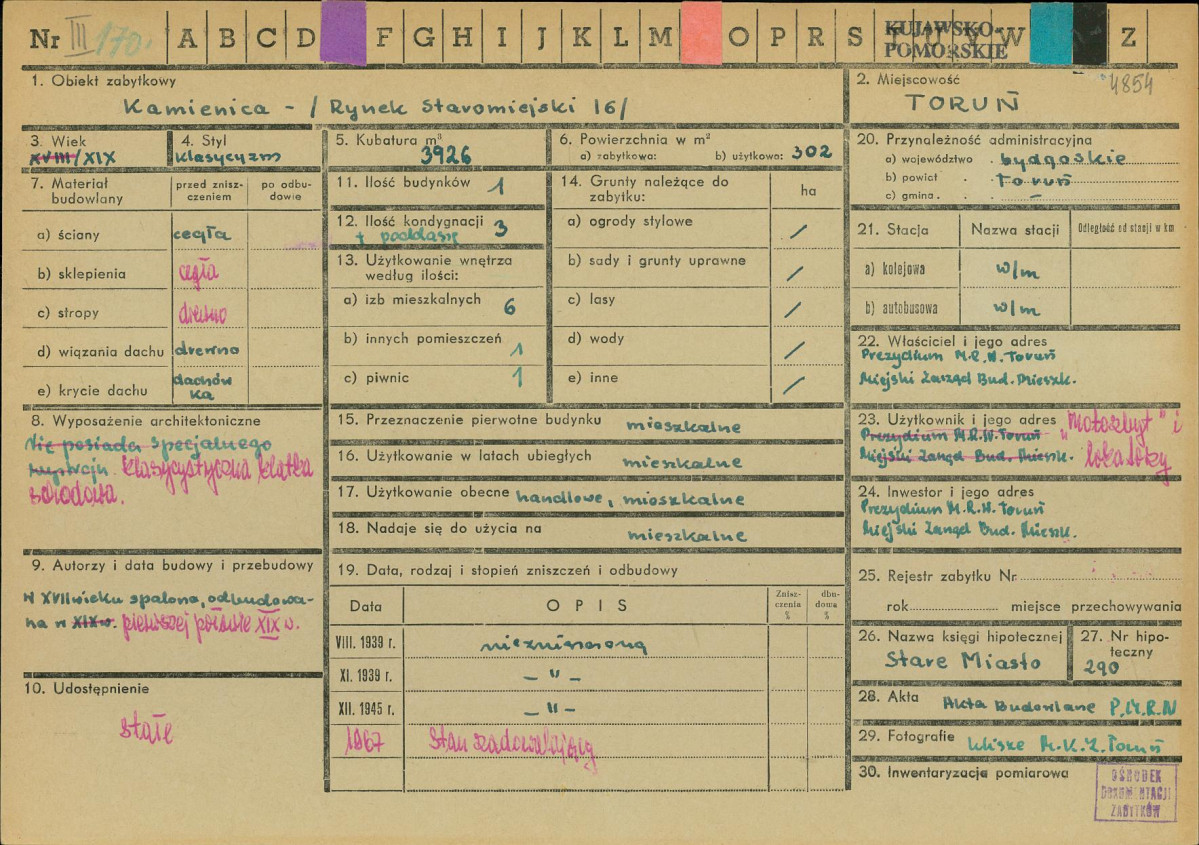 Nr III 170. A B C D F G H I J K L M O P R S T U W Z
KUJAWSKO-
POMORSKIE
1. Obiekt zabytkowy
Kamienica - / Rynek Staromiejski 16/
2. Miejscowość
4854
TORUŃ
3. Wiek
XVIII/XIX
4. Styl
klasycyzm
5. Kubatura m³
3926
6. Powierzchnia w m²
a) zabytkowa: b) użytkowa: 302
7. Materiał budowlany
przed znisz-
czeniem
po odbu-
dowie
a) ściany cegła
b) sklepienia cegła
c) stropy drewno
d) wiązania dachu drewno
e) krycie dachu dachów
ka
8. Wyposażenie architektoniczne
Nie posiada specjalnego
klasycystyczna klatka
schodowa.
9. Autorzy i data budowy i przebudowy
W XVII wieku spalona, odbudowa-
na w XIX w. pierwszej połowie XIX w.
10. Udostępnienie
stałe
11. Ilość budynków 1
12. Ilość kondygnacji 3
+ poddasze
13. Użytkowanie wnętrza
według ilości:
a) izb mieszkalnych 6
b) innych pomieszczeń 1
c) piwnic 1
14. Grunty należące do
zabytku:
ha
a) ogrody stylowe /
b) sady i grunty uprawne /
c) lasy /
d) wody /
e) inne /
15. Przeznaczenie pierwotne budynku mieszkalne
16. Użytkowanie w latach ubiegłych mieszkalne
17. Użytkowanie obecne handlowe, mieszkalne
18. Nadaje się do użycia na mieszkalne
19. Data, rodzaj i stopień zniszczeń i odbudowy
Data OPIS
Znisz-
czenia
%
dbu-
dowa
%
VIII. 1939 r. niezniszczona
XI. 1939 r. - " -
XII. 1945 r. - " -
1967 Stan zadowalający
20. Przynależność administracyjna
a) województwo . bydgoskie
b) powiat . . Toruń
c) gmina . . . -
21. Stacja Nazwa stacji Odległość od stacji w km
a) kolejowa w/m
b) autobusowa w/m
22. Właściciel i jego adres
Prezydium M.R.N. Toruń
Miejski Zarząd Bud. Mieszk.
23. Użytkownik i jego adres "Motozbyt" i
Prezydium M.R.N. Toruń
Miejski Zarząd Bud. Mieszk. lokatorzy
24. Inwestor i jego adres
Prezydium M.R.N. Toruń
Miejski Zarząd Bud. Mieszk.
25. Rejestr zabytku Nr
rok miejsce przechowywania
26. Nazwa księgi hipotecznej
Stare Miasto
27. Nr hipo-
teczny
290
28. Akta Akta Budowlane P.M.R.N
29. Fotografie klisze M.K.Z. Toruń
30. Inwentaryzacja pomiarowa
OŚRODEK
DOKUMENTACJI
ZABYTKÓW